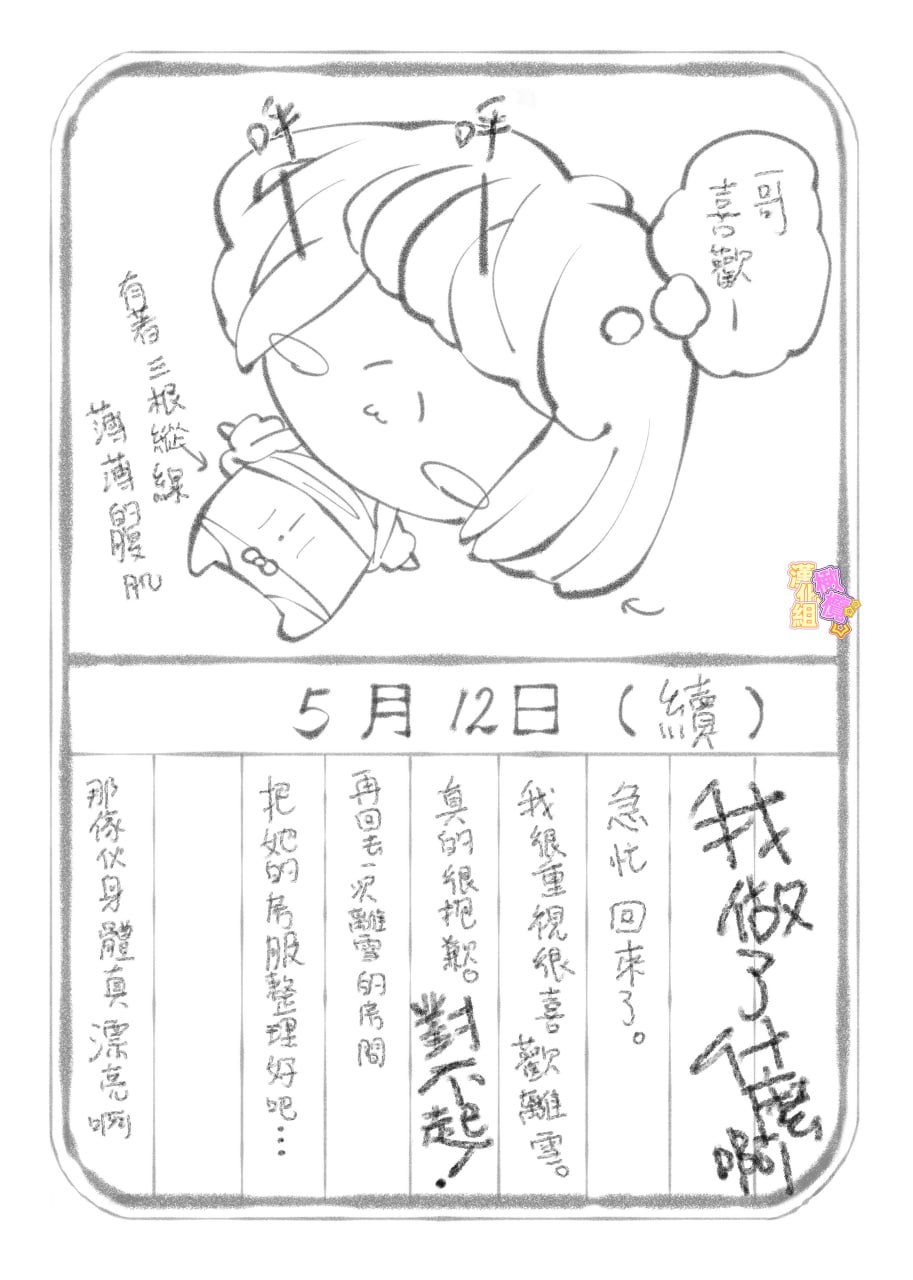 哥
喜歡ー
呼ー
呼ー
有著三根縱線
薄薄的腹肌
漢化組
5月12日（續）
我做了什麼啊
急忙回來了。
我很重視很喜歡離雪。
真的很抱歉。對不起！
再回去一次離雪的房間
把她的房服整理好吧…
那傢伙身體真漂亮啊